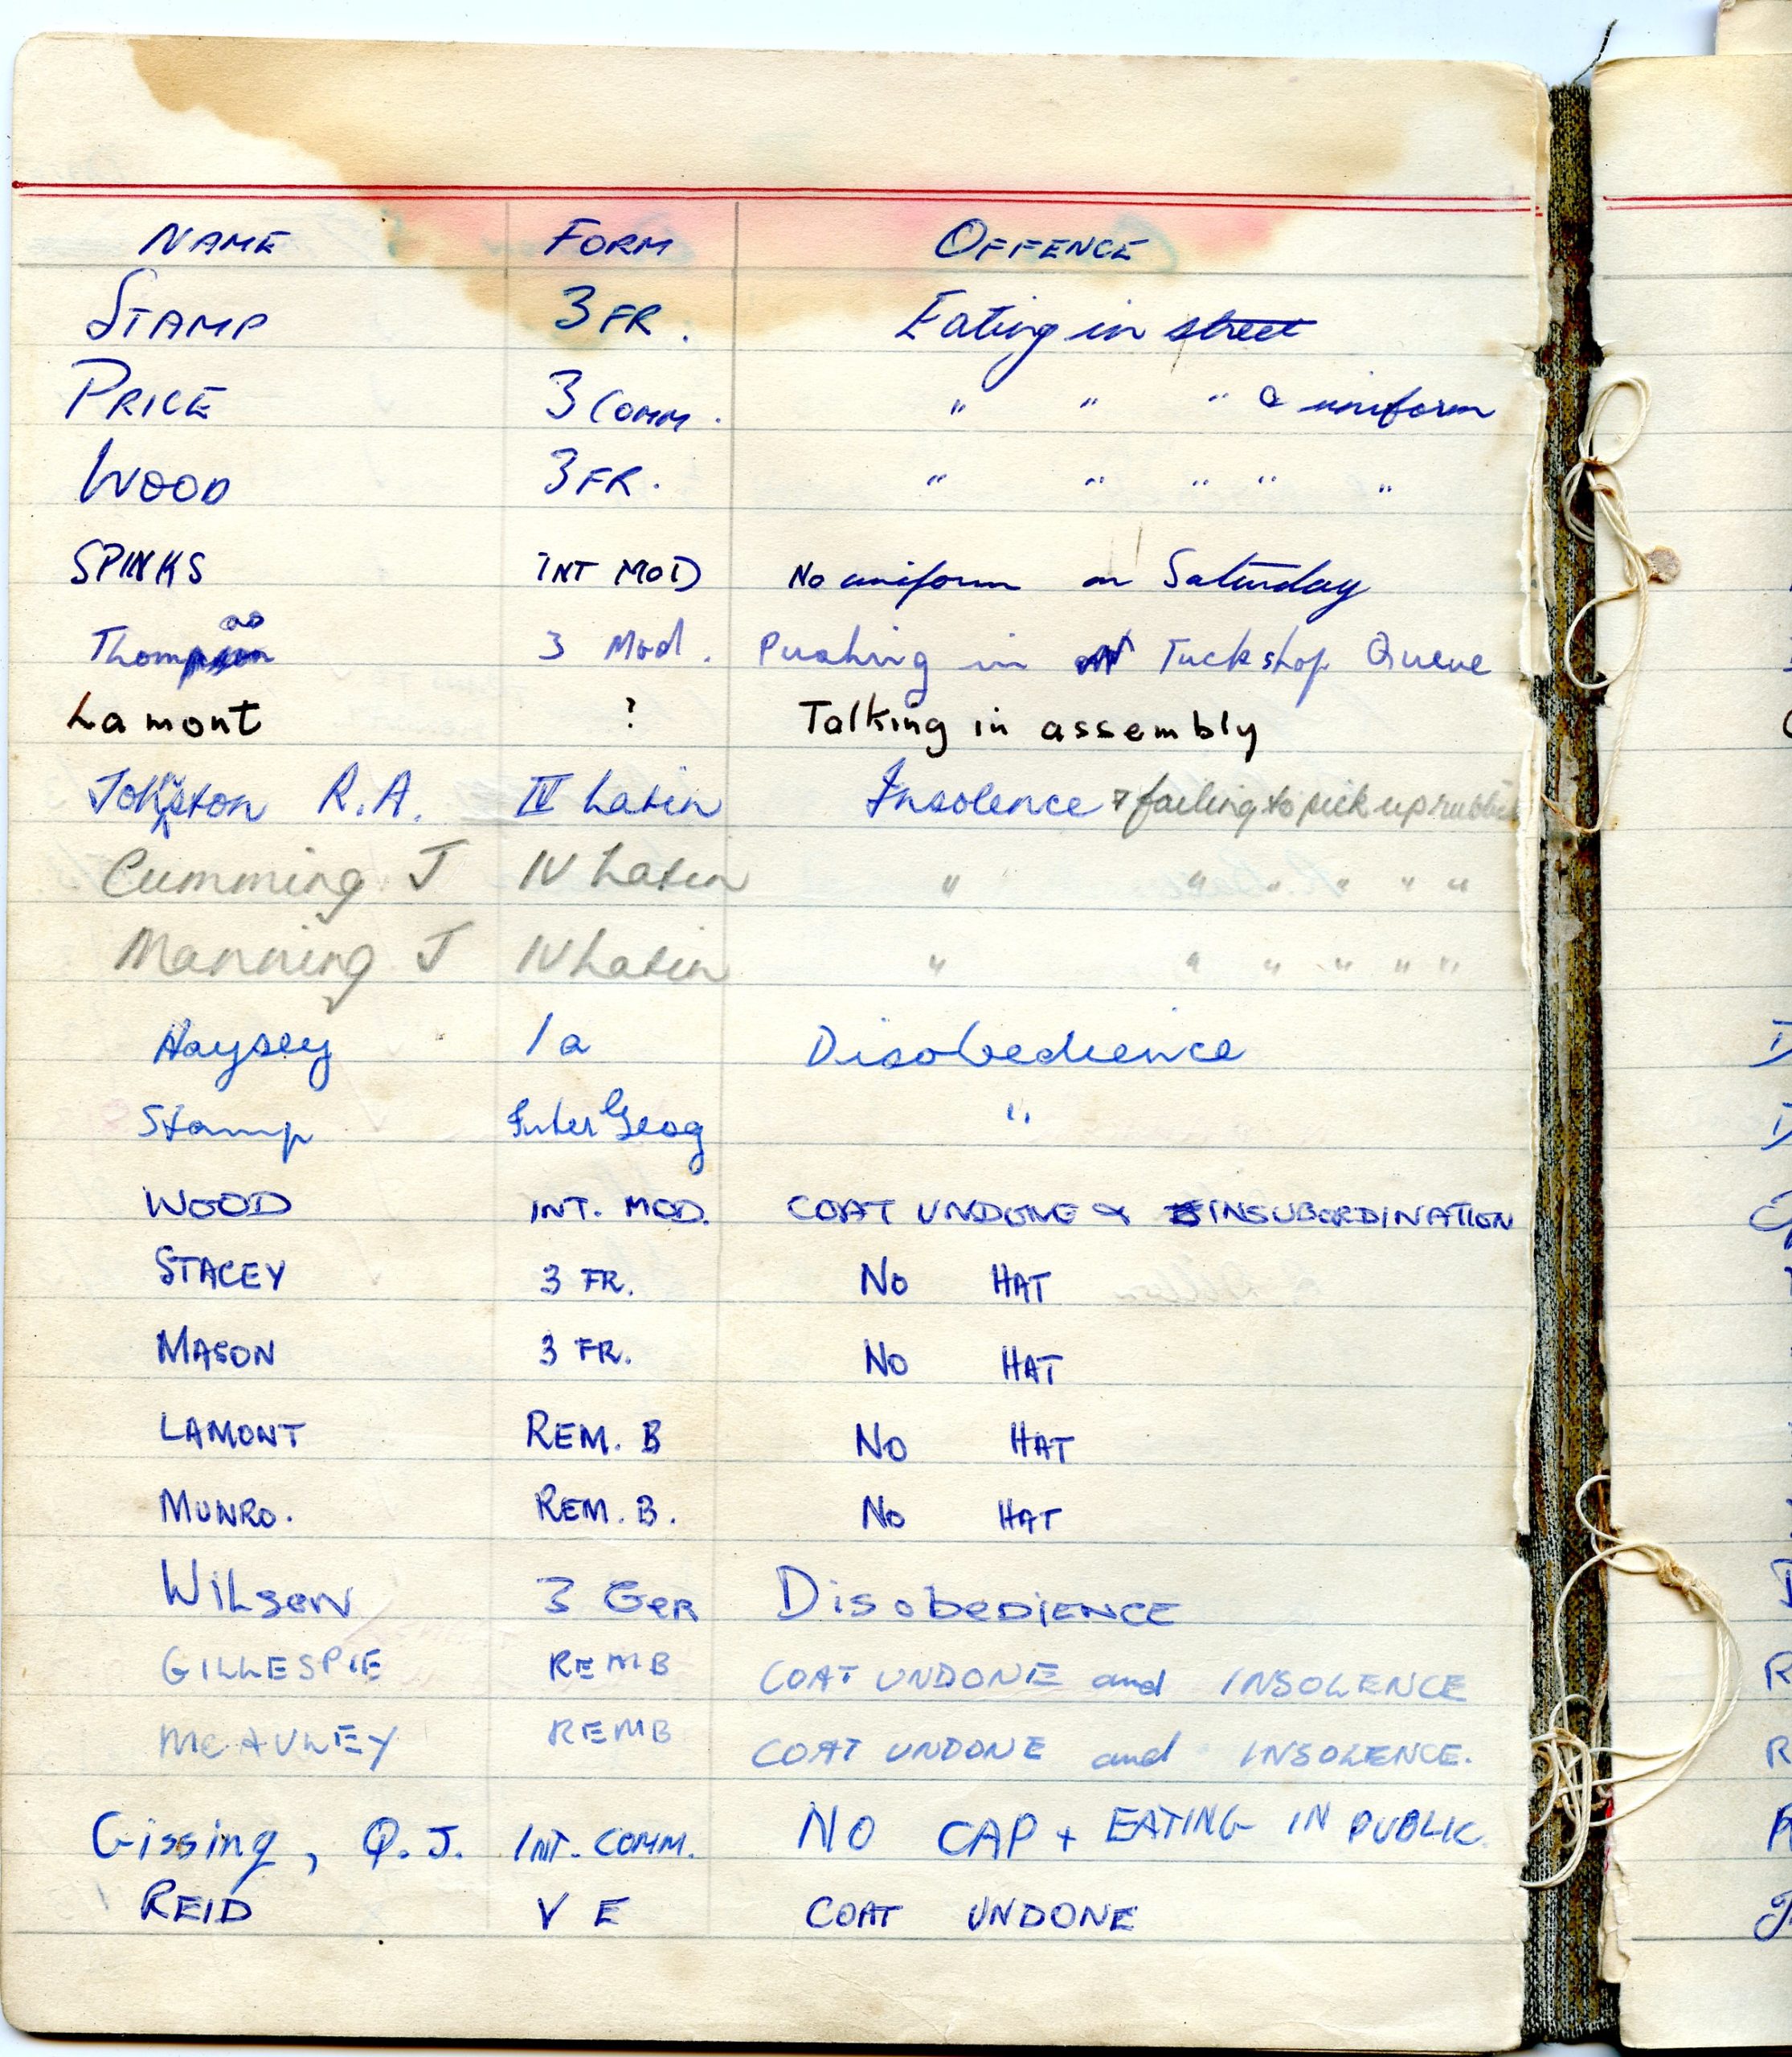 NAME FORM OFFENCE
STAMP 3 FR. Eating in street
PRICE 3 COMM. " " " & uniform
WOOD 3 FR. " " " " "
SPINKS INT MOD No uniform on Saturday
Thomas 3 Mod. Pushing in Tuckshop Queue
Lamont ? Talking in assembly
Johnston R.A. IV Latin Insolence & failing to pick up rubbish
Cumming J IV Latin " " " " " "
Manning J IV Latin " " " " " "
Haysey 1a Disobedience
Stamp Inter Geog "
WOOD INT. MOD. COAT UNDONE & INSUBORDINATION
STACEY 3 FR. NO HAT
MASON 3 FR. NO HAT
LAMONT REM. B NO HAT
MUNRO. REM. B. NO HAT
WILSON 3 GER DisobeDIENCE
GILLESPIE REM B COAT UNDONE and INSOLENCE
McAULEY REM B COAT UNDONE and INSOLENCE.
Gissing, Q.J. INT. COMM. NO CAP + EATING IN PUBLIC.
REID V E COAT UNDONE